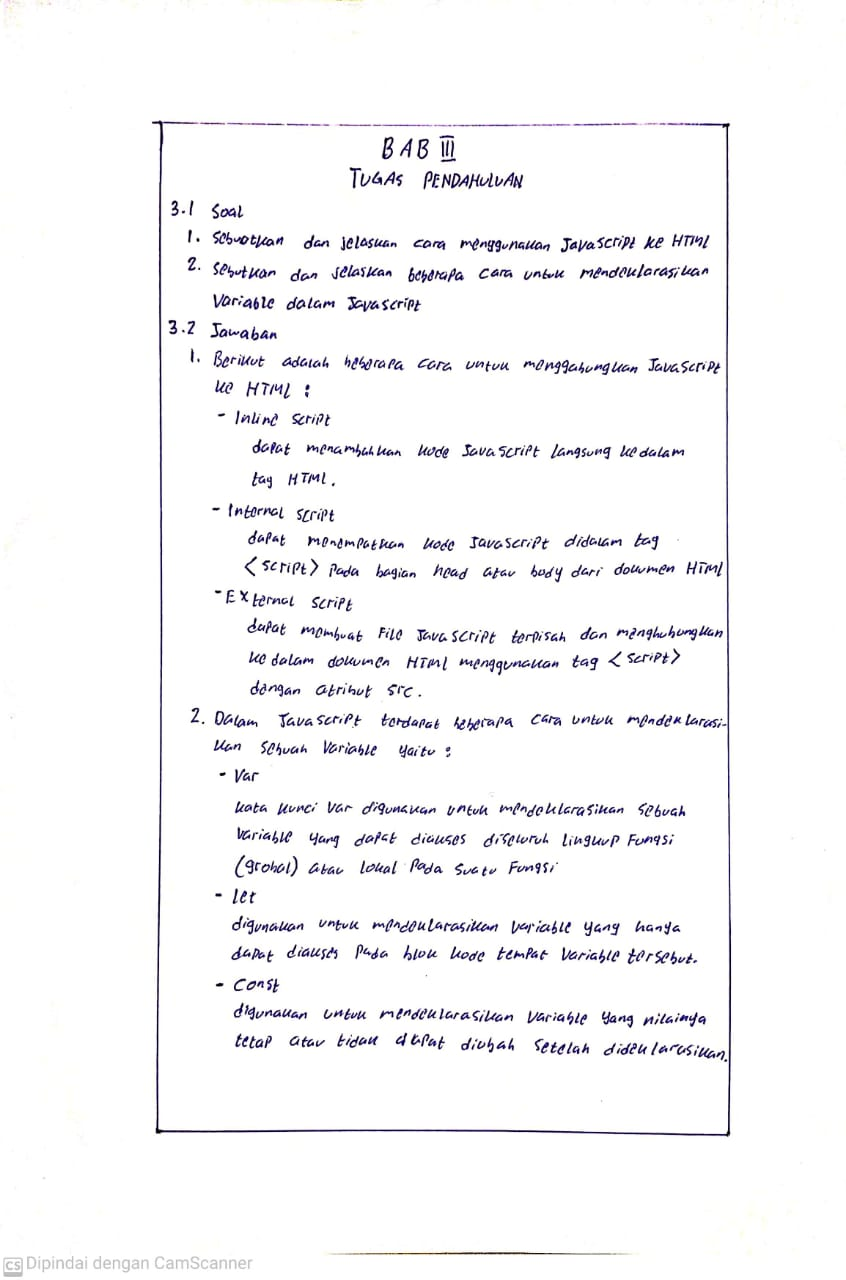 BAB III
TUGAS PENDAHULUAN
3.1 Soal
1. Sebuatkan dan jelaskan cara menggunakan JavaScript ke HTML
2. Sebutkan dan jelaskan beberapa cara untuk mendeklarasikan
Variable dalam Javascript
3.2 Jawaban
1. Berikut adalah beberapa cara untuk menggabungkan JavaScript
ke HTML :
- Inline script
dapat menambahkan kode JavaScript langsung kedalam
tag HTML.
- Internal script
dapat menempatkan kode JavaScript didalam tag
<script> pada bagian head atau body dari dokumen HTML
- External script
dapat membuat File JavaScript terpisah dan menghubungkan
kedalam dokumen HTML menggunakan tag <script>
dengan atribut src.
2. Dalam JavaScript terdapat beberapa cara untuk mendeklarasi-
kan sebuah Variable yaitu :
- Var
kata kunci var digunakan untuk mendeklarasikan sebuah
Variable yang dapat diakses diseluruh lingkup Fungsi
(grobal) atau lokal pada suatu Fungsi
- let
digunakan untuk mendeklarasikan Variable yang hanya
dapat diakses pada blok kode tempat Variable tersebut.
- Const
digunakan untuk mendeklarasikan Variable yang nilainya
tetap atau tidak dapat diubah setelah dideklarasikan.
CS Dipindai dengan CamScanner